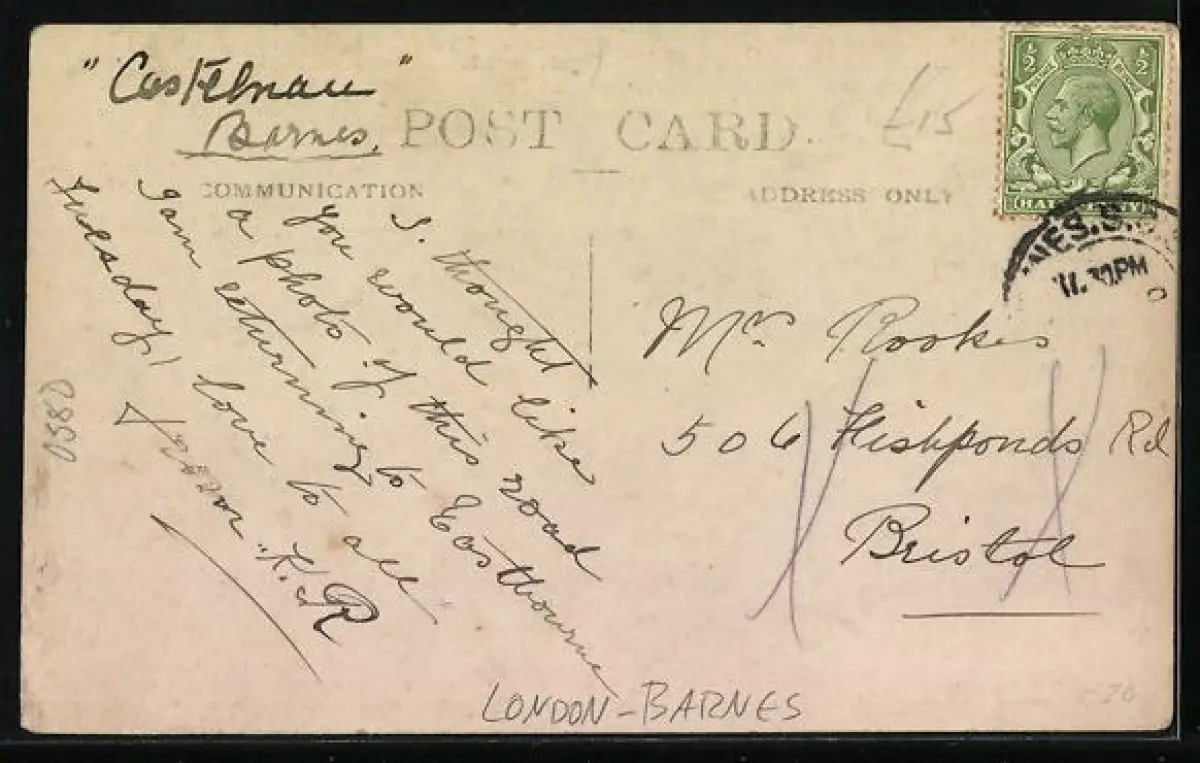 "Castelnau"
Barnes.
POST CARD.
£15
COMMUNICATION
ADDRESS ONLY
½ ½
NES.S.
11.30PM
I thought
you would like
a photo of this road
I am returning to Eastbourne
Tuesday! love to all
from "K.R
Mrs Rookes
506 Fishponds Rd
Bristol
0580
LONDON-BARNES